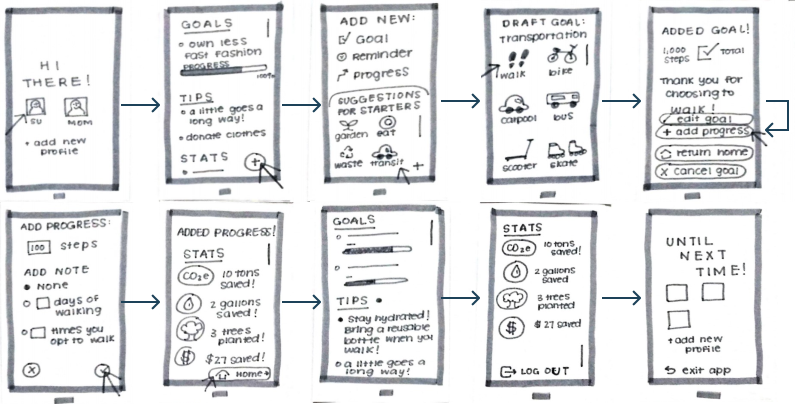 HI
THERE!
SU
MOM
+ add new
profile
GOALS
own less
fast fashion
PROGRESS
100%
TIPS
a little goes a
long way!
donate clothes
STATS
+
ADD NEW:
Goal
Reminder
Progress
SUGGESTIONS
FOR STARTERS
garden eat
waste transit
+
DRAFT GOAL:
Transportation
walk bike
carpool bus
scooter skate
ADDED GOAL!
1,000
steps
TOTAL
Thank you for
choosing to
walk!
edit goal
+ add progress
return home
x cancel goal
ADD PROGRESS:
100 steps
ADD NOTE
None
days of
walking
times you
opt to walk
x
ADDED PROGRESS!
STATS
CO2e 10 tons
saved!
2 gallons
saved!
3 trees
planted!
$ $27 saved!
HOME
GOALS
TIPS
Stay hydrated!
Bring a reusable
bottle when you
walk!
a little goes a
long way!
STATS
CO2e 10 tons
saved!
2 gallons
saved!
3 trees
planted
$ $27 saved
LOG OUT
UNTIL
NEXT
TIME!
+ add new
profile
exit app